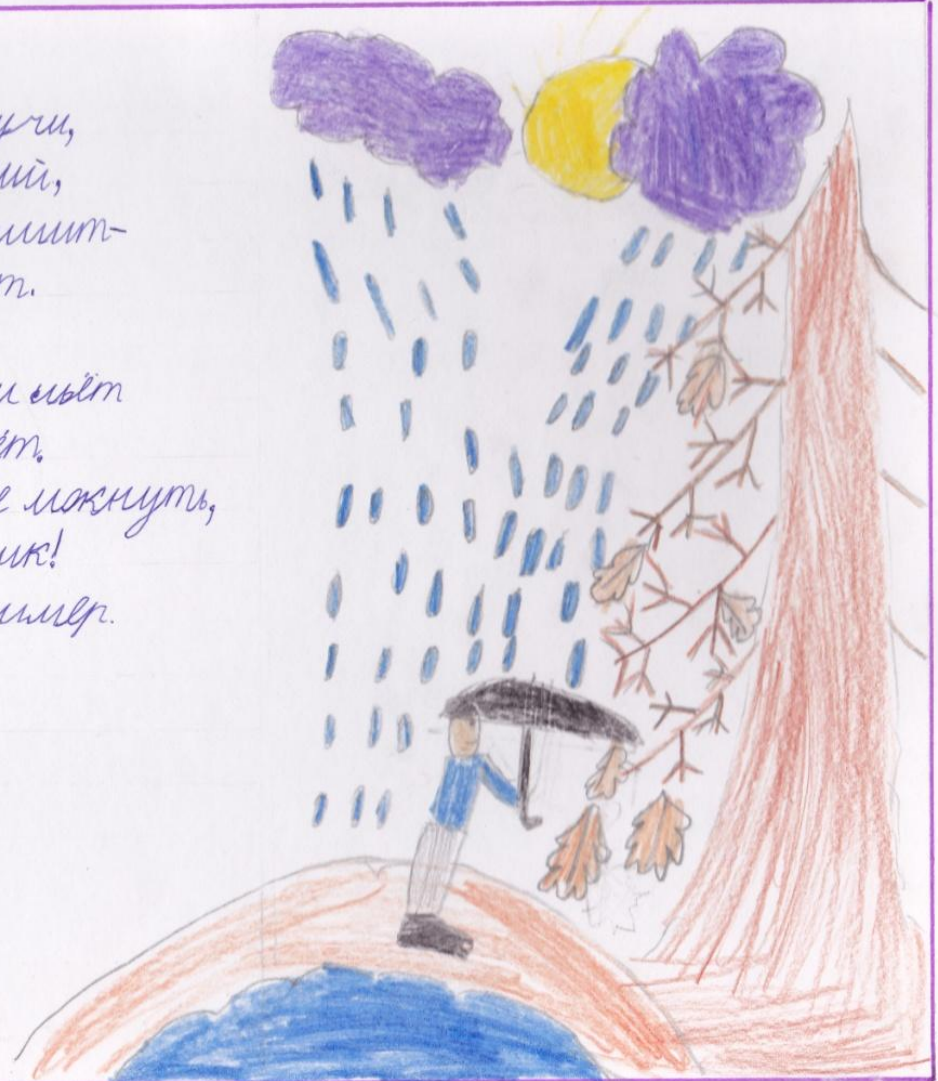 учи,
ий,
шит-
т.
и льёт
ёт.
е мокнуть,
ик!
имер.